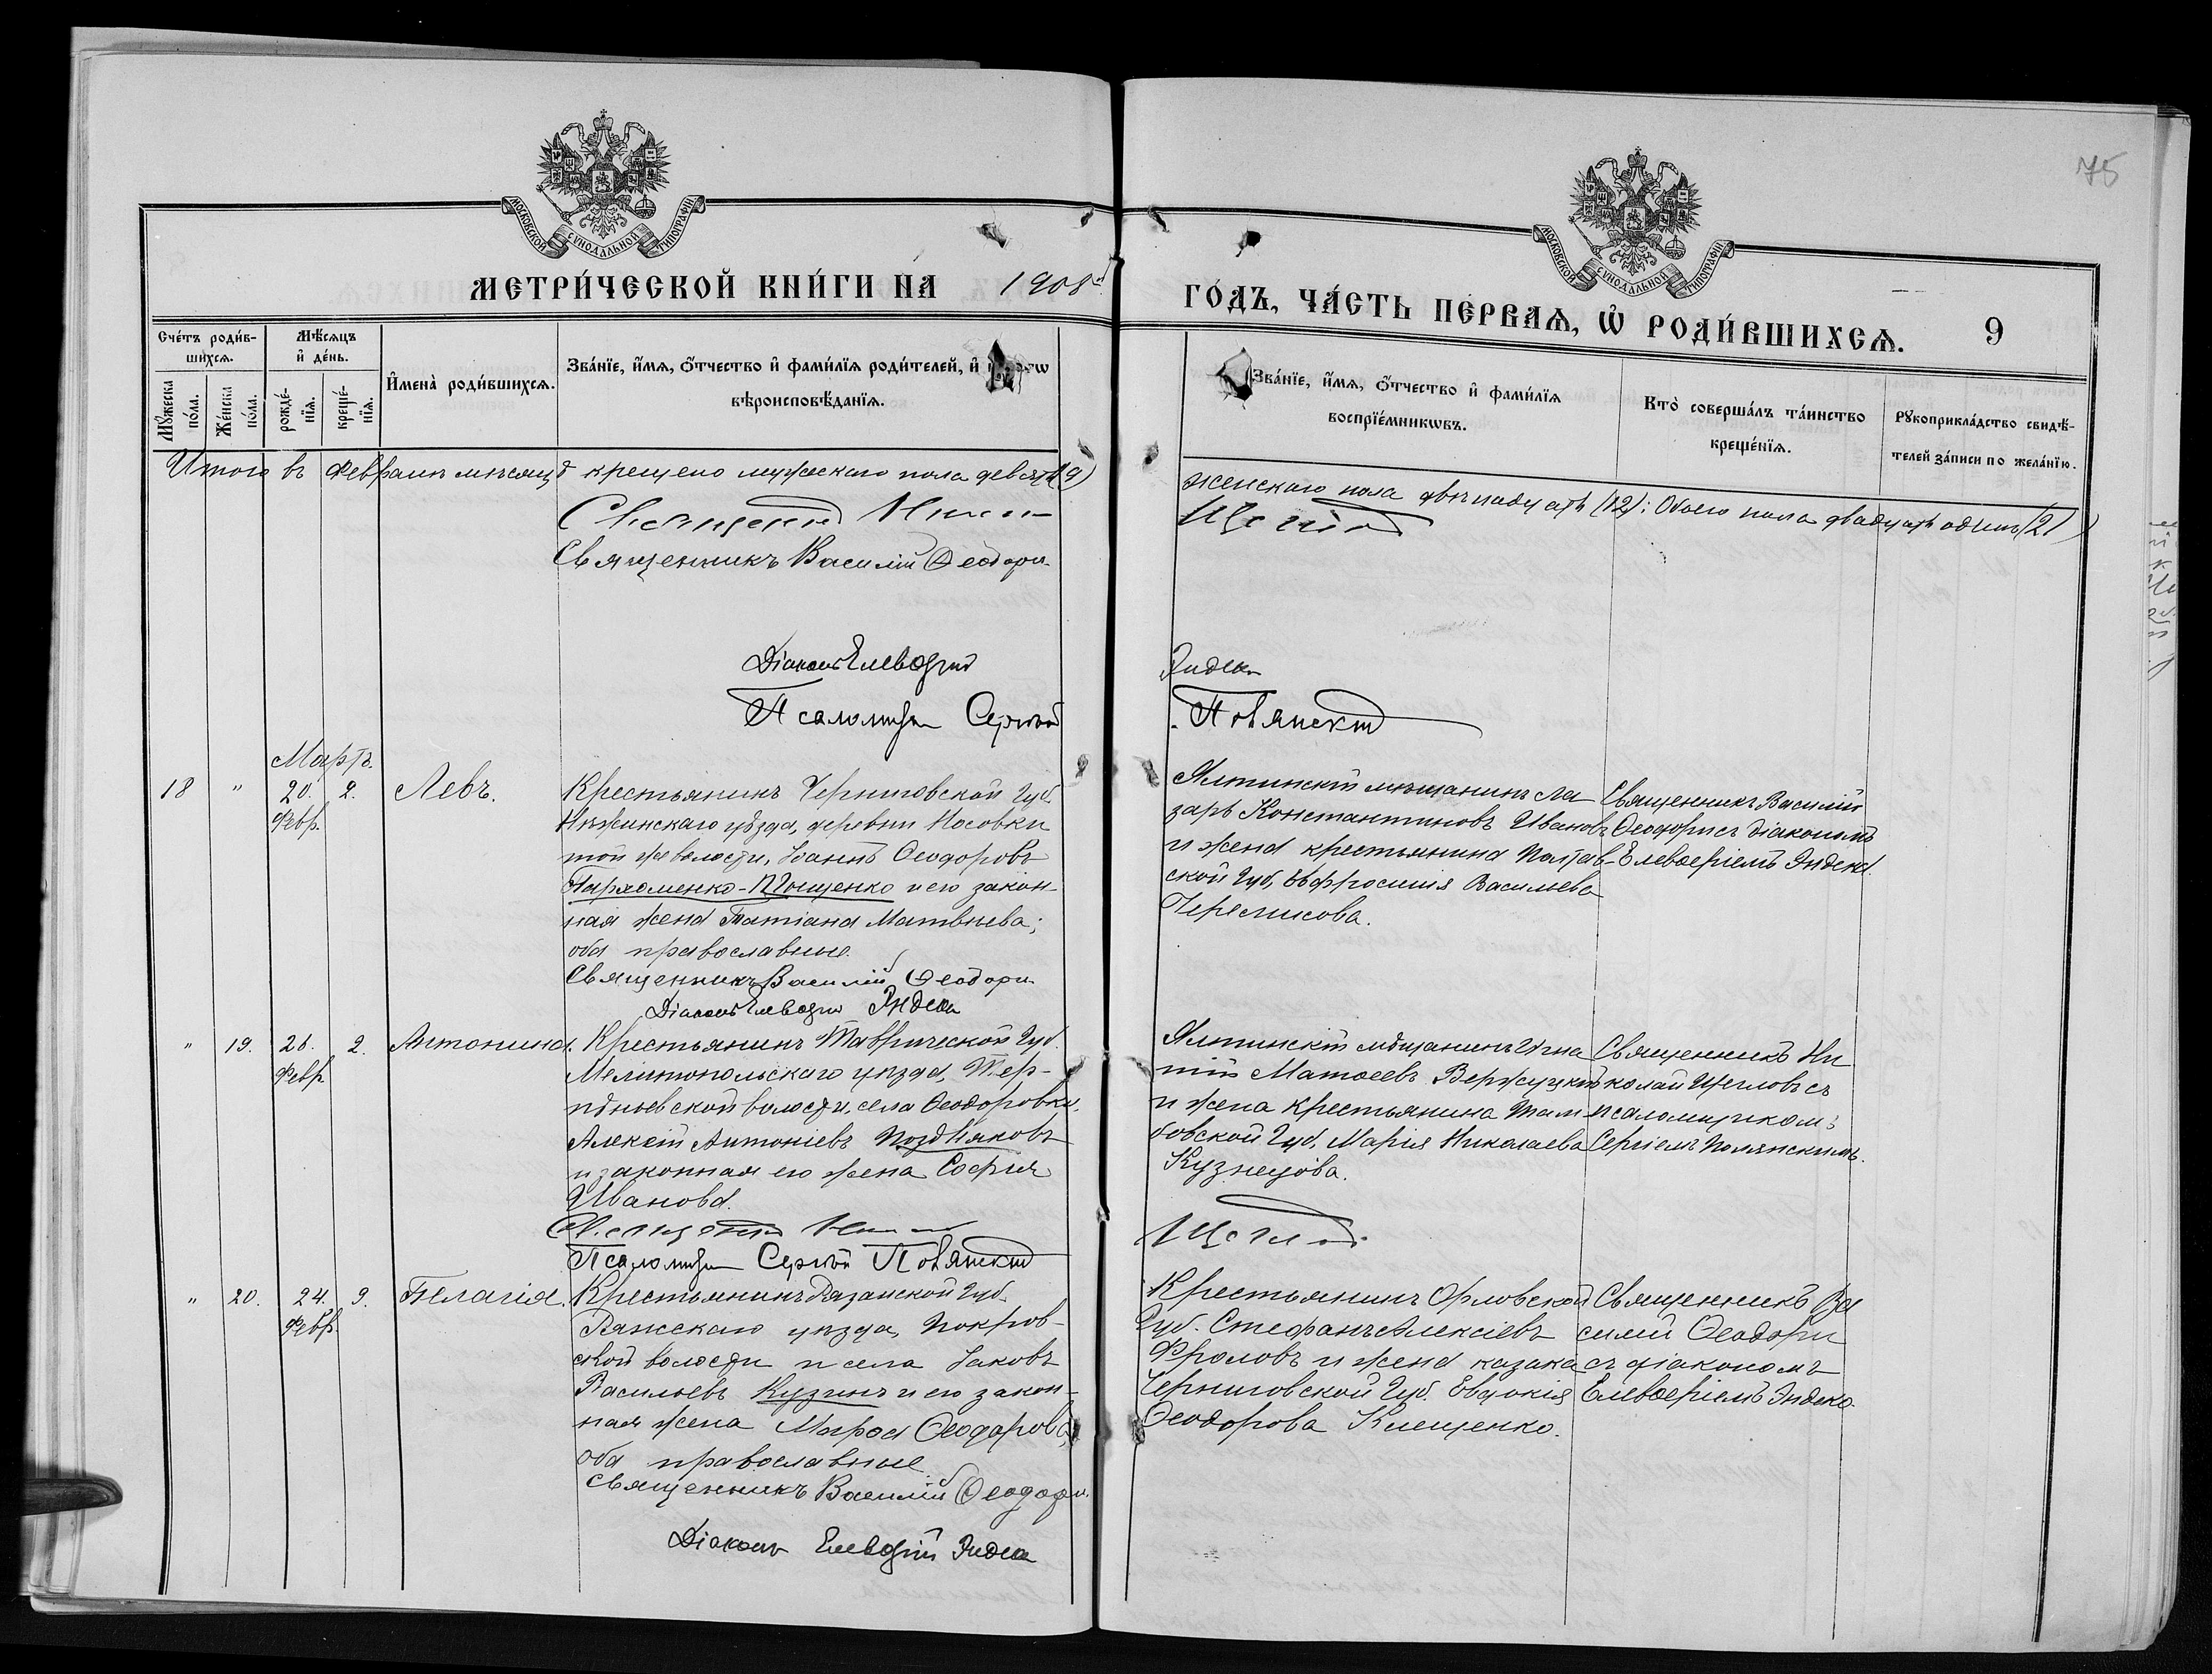 75
МОСКОВСКОЙ СУНОДАЛЬНОЙ ТИПОГРАФІИ
МОСКОВСКОЙ СУНОДАЛЬНОЙ ТИПОГРАФІИ
МЕТРИ́ЧЕСКОЙ КНИ́ГИ НА 1908
ГО́ДЪ, ЧА́СТЬ ПЕ́РВАѦ, Ѡ҆ РОДИ́ВШИХСѦ. 9
Сче́тъ роди́в-
шихсѧ.
Мꙋ́жеска по́ла.
Же́нска по́ла.
Мѣ́сѧцъ
и҆ де́нь.
рожде́-
нїѧ.
креще́-
нїѧ.
И҆мена̀ роди́вшихсѧ.
Зва́нїе, и҆́мѧ, ѻ҆́тчество и҆ фами́лїѧ роди́телей, и҆
вѣроисповѣ́данїѧ.
Зва́нїе, и҆́мѧ, ѻ҆́тчество и҆ фами́лїѧ
воспрїе́мникѡвъ.
Кто̀ соверша́лъ та́инство
креще́нїѧ.
Рꙋкоприкла́дство свидѣ́-
телей за́писи по жела́нїю.
Итого въ Февралѣ мѣсяцѣ крещено мужескаго пола девять (9)
женскаго пола двѣнадцать (12): Обоего пола двадцать одинъ (21)
Священникъ Василій Ѳеодори
Діаконъ Елевѳерій
Эндека
Псаломщ Сергій
Полянскій
Мартъ.
18 " 20. 2. Левъ.
Февр.
Крестьянинъ Черниговской Губ.
Нѣжинскаго уѣзда, деревни Носовки
той же волости, Іоаннъ Ѳеодоровъ
Пархоменко-
и его закон-
ная жена Татіана Матвѣева;
оба православные.
Священникъ Василій Ѳеодори
Діаконъ Елевѳерій Эндека
Ялтинскій мѣщанинъ Ла
заръ Константиновъ Ивановъ
и жена крестьянина Полтав-
ской Губ, Евфросинія Васильева
Черемисова.
Священникъ Василій
Ѳеодори съ діакономъ
Елевѳеріемъ Эндека
" 19. 26. 2. Антонина.
Февр
Крестьянинъ Таврической Губ.
Мелитопольскаго уѣзда, Тер-
пѣньевской волости, села Ѳеодоровки,
Алексій Антоніевъ Поздняковъ
и законная его жена Софія
Иванова.
Псаломщ Сергій Полянскій
Ялтинскій мѣщанинъ Игна
тій Матѳеевъ Вержуцкій
и жена крестьянина Там-
бовской Губ, Марія Николаева
Кузнецова.
Священникъ Ни
колай Щегловъ съ
псаломщикомъ
Сергіемъ Полянскимъ.
" 20. 24. 9. Пелагія.
Февр.
Крестьянинъ Рязанской Губ.
Ряжскаго уѣзда, Покров-
ской волости и села Іаковъ
Васильевъ Кузинъ и его закон-
ная жена Марѳа Ѳеодорова,
оба православные.
Священникъ Василій Ѳеодори
Діаконъ Елевѳерій Эндека
Крестьянинъ Орловской
Губ. Стефанъ Алексіевъ
Фроловъ и жена казака
Черниговской Губ. Евдокія
Ѳеодорова Клещенко.
Священникъ Ва
силій Ѳеодори
съ діакономъ
Елевѳеріемъ Эндека.